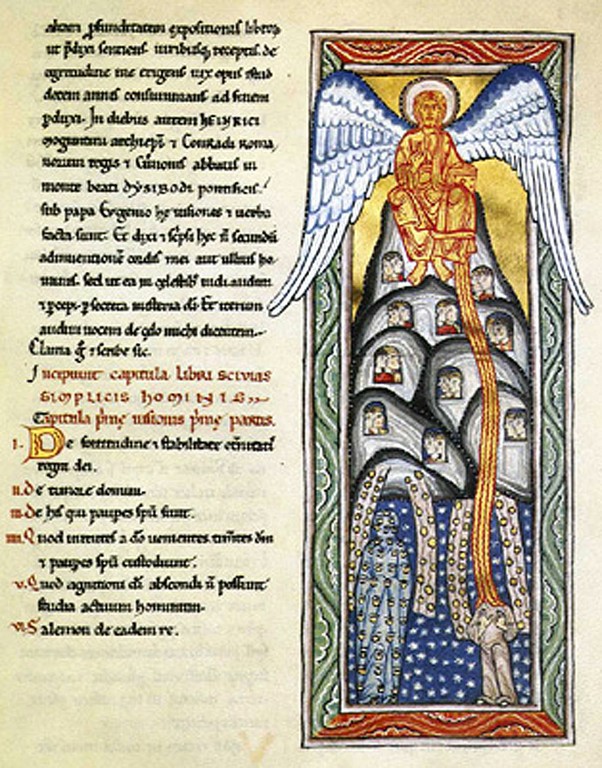 aliquam pfunditatem expositionis libroꝝ
ut p̄dixi sentiens. uiribusq; receptis de
egritudine me erigens uix opus istud
decem annis consummans ad finem
pduxi. In diebus autem heinrici
moguntini archiepi ⁊ Conradi roma
norum regis ⁊ Cunonis abbatis in
monte beati dysibodi pontificis.
sub papa Eugenio hę uisiones ⁊ uerba
facta sunt. Et dixi ⁊ scpsi hęc n̄ secundū
adinuentionem cordis mei aut ullius ho
minis. sed ut ea in cęlestib; uidi. audiui
⁊ pcepi. p secreta misteria di. Et iterum
audiui uocem de cęlo michi dicentem.
Clama g̊ ⁊ scribe sic.
Incipiunt capitula libri scivias
simplicis hominis
Capitula p̄mę uisionis p̄mę partis.
i. De fortitudine ⁊ stabilitate
regni dei.
ii. De timore domini.
iii. De his qui paupes spū sunt.
iiii. Quod uirtutes a dō uenientes. timētes dm̄
⁊ paupes spū custodiunt.
v. Quod agnitioni di abscondi n̄ possunt
studia actuum hominum.
vi. Salemon de eadem re.